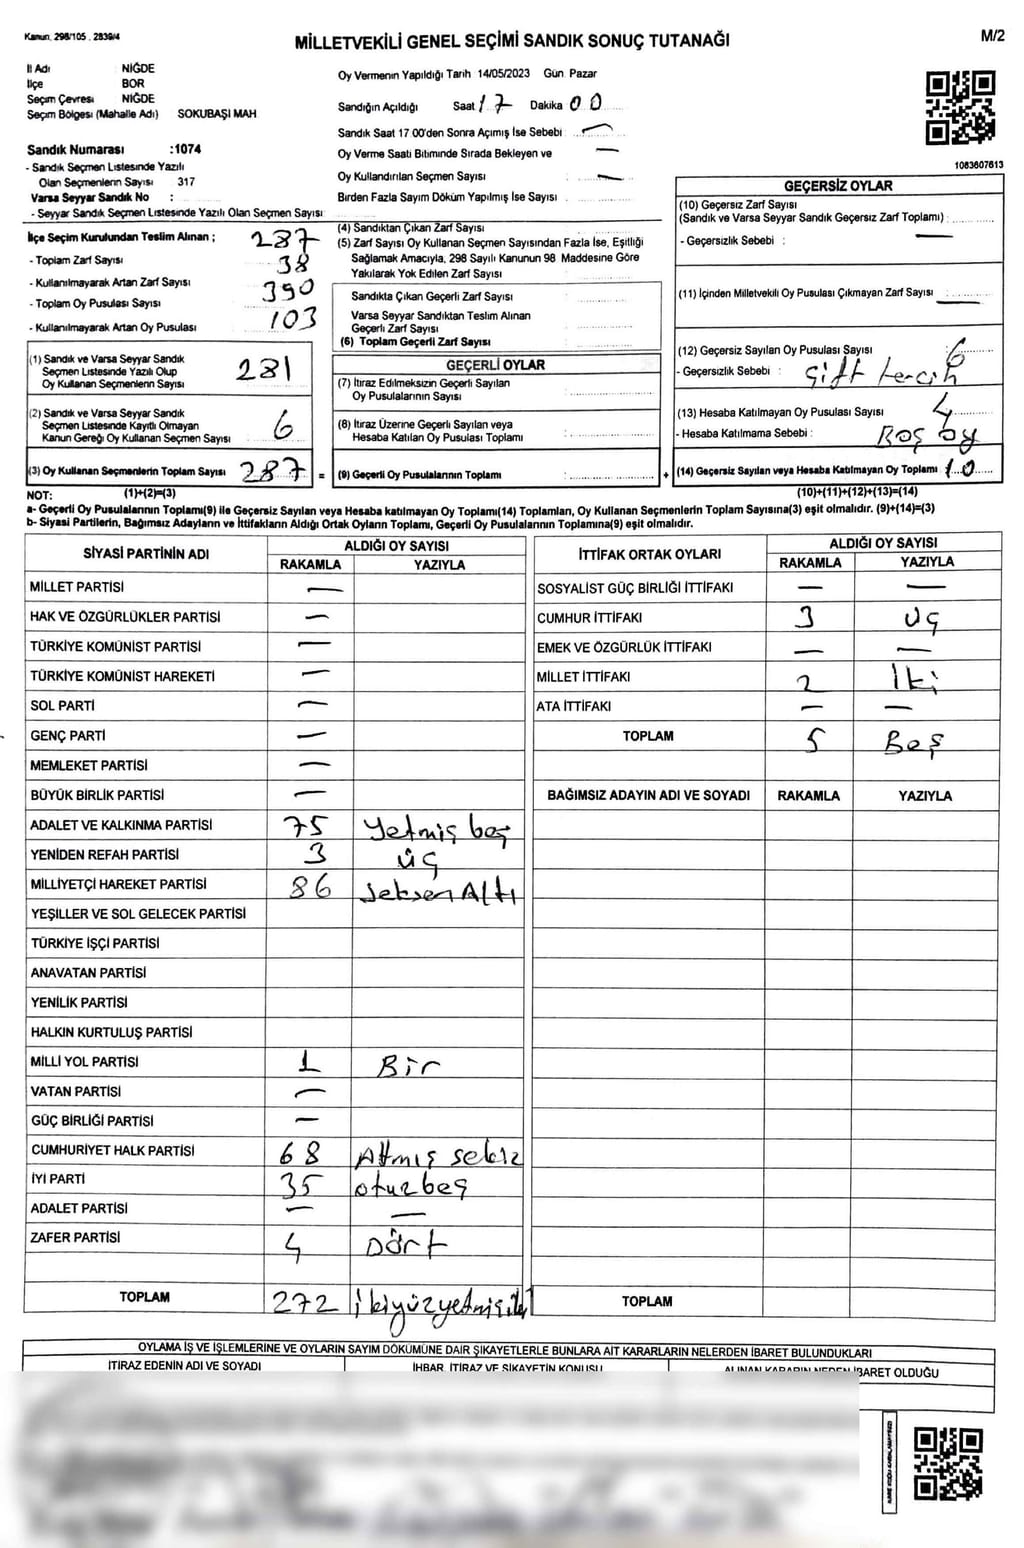 Kanun. 298/105 . 2839/4
MİLLETVEKİLİ GENEL SEÇİMİ SANDIK SONUÇ TUTANAĞI
M/2
İl Adı NİĞDE
İlçe BOR
Seçim Çevresi NİĞDE
Seçim Bölgesi (Mahalle Adı) SOKUBAŞI MAH
Sandık Numarası :1074
- Sandık Seçmen Listesinde Yazılı
Olan Seçmenlerin Sayısı 317
Varsa Seyyar Sandık No :
- Seyyar Sandık Seçmen Listesinde Yazılı Olan Seçmen Sayısı
Oy Vermenin Yapıldığı Tarih 14/05/2023 Gün Pazar
Sandığın Açıldığı Saat 17 Dakika 00
Sandık Saat 17 00'den Sonra Açımış İse Sebebi : —
Oy Verme Saati Bitiminde Sırada Bekleyen ve —
Oy Kullandırılan Seçmen Sayısı : —
Birden Fazla Sayım Döküm Yapılmış İse Sayısı :
1083607613
İlçe Seçim Kurulundan Teslim Alınan ; 287
- Toplam Zarf Sayısı 38
- Kullanılmayarak Artan Zarf Sayısı 390
- Toplam Oy Pusulası Sayısı 103
- Kullanılmayarak Artan Oy Pusulası
(1) Sandık ve Varsa Seyyar Sandık
Seçmen Listesinde Yazılı Olup
Oy Kullanan Seçmenlerin Sayısı 281
(2) Sandık ve Varsa Seyyar Sandık
Seçmen Listesinde Kayıtlı Olmayan
Kanun Gereği Oy Kullanan Seçmen Sayısı 6
(3) Oy Kullanan Seçmenlerin Toplam Sayısı 287 =
(4) Sandıktan Çıkan Zarf Sayısı
(5) Zarf Sayısı Oy Kullanan Seçmen Sayısından Fazla İse, Eşitliği
Sağlamak Amacıyla, 298 Sayılı Kanunun 98 Maddesine Göre
Yakılarak Yok Edilen Zarf Sayısı
Sandıkta Çıkan Geçerli Zarf Sayısı
Varsa Seyyar Sandıktan Teslim Alınan
Geçerli Zarf Sayısı
(6) Toplam Geçerli Zarf Sayısı
GEÇERLİ OYLAR
(7) İtiraz Edilmeksizin Geçerli Sayılan
Oy Pusulalarının Sayısı
(8) İtiraz Üzerine Geçerli Sayılan veya
Hesaba Katılan Oy Pusulası Toplamı
(9) Geçerli Oy Pusulalarının Toplamı : +
GEÇERSİZ OYLAR
(10) Geçersiz Zarf Sayısı
(Sandık ve Varsa Seyyar Sandık Geçersiz Zarf Toplamı) :
- Geçersizlik Sebebi : —
(11) İçinden Milletvekili Oy Pusulası Çıkmayan Zarf Sayısı —
(12) Geçersiz Sayılan Oy Pusulası Sayısı 6
- Geçersizlik Sebebi : Çift tercih
(13) Hesaba Katılmayan Oy Pusulası Sayısı 4
- Hesaba Katılmama Sebebi : Boş oy
(14) Geçersiz Sayılan veya Hesaba Katılmayan Oy Toplamı 10
NOT: (1)+(2)=(3)
(10)+(11)+(12)+(13)=(14)
a- Geçerli Oy Pusulalarının Toplamı(9) ile Geçersiz Sayılan veya Hesaba katılmayan Oy Toplamı(14) Toplamları, Oy Kullanan Seçmenlerin Toplam Sayısına(3) eşit olmalıdır. (9)+(14)=(3)
b- Siyasi Partilerin, Bağımsız Adayların ve İttifakların Aldığı Ortak Oyların Toplamı, Geçerli Oy Pusulalarının Toplamına(9) eşit olmalıdır.
SİYASİ PARTİNİN ADI ALDIĞI OY SAYISI
RAKAMLA YAZIYLA
MİLLET PARTİSİ —
HAK VE ÖZGÜRLÜKLER PARTİSİ —
TÜRKİYE KOMÜNİST PARTİSİ —
TÜRKİYE KOMÜNİST HAREKETİ —
SOL PARTİ —
GENÇ PARTİ —
MEMLEKET PARTİSİ —
BÜYÜK BİRLİK PARTİSİ —
ADALET VE KALKINMA PARTİSİ 75 Yetmiş beş
YENİDEN REFAH PARTİSİ 3 üç
MİLLİYETÇİ HAREKET PARTİSİ 86 Seksen Altı
YEŞİLLER VE SOL GELECEK PARTİSİ
TÜRKİYE İŞÇİ PARTİSİ
ANAVATAN PARTİSİ
YENİLİK PARTİSİ
HALKIN KURTULUŞ PARTİSİ
MİLLİ YOL PARTİSİ 1 Bir
VATAN PARTİSİ —
GÜÇ BİRLİĞİ PARTİSİ —
CUMHURİYET HALK PARTİSİ 68 Altmış sekiz
İYİ PARTİ 35 otuzbeş
ADALET PARTİSİ — —
ZAFER PARTİSİ 4 Dört
TOPLAM 272 ikiyüzyetmişiki
İTTİFAK ORTAK OYLARI ALDIĞI OY SAYISI
RAKAMLA YAZIYLA
SOSYALİST GÜÇ BİRLİĞİ İTTİFAKI — —
CUMHUR İTTİFAKI 3 Üç
EMEK VE ÖZGÜRLÜK İTTİFAKI — —
MİLLET İTTİFAKI 2 İki
ATA İTTİFAKI — —
TOPLAM 5 Beş
BAĞIMSIZ ADAYIN ADI VE SOYADI RAKAMLA YAZIYLA
TOPLAM
OYLAMA İŞ VE İŞLEMLERİNE VE OYLARIN SAYIM DÖKÜMÜNE DAİR ŞİKAYETLERLE BUNLARA AİT KARARLARIN NELERDEN İBARET BULUNDUKLARI
İTİRAZ EDENİN ADI VE SOYADI İHBAR, İTİRAZ VE ŞİKAYETİN KONUSU ALINAN KARARIN NEDEN İBARET OLDUĞU